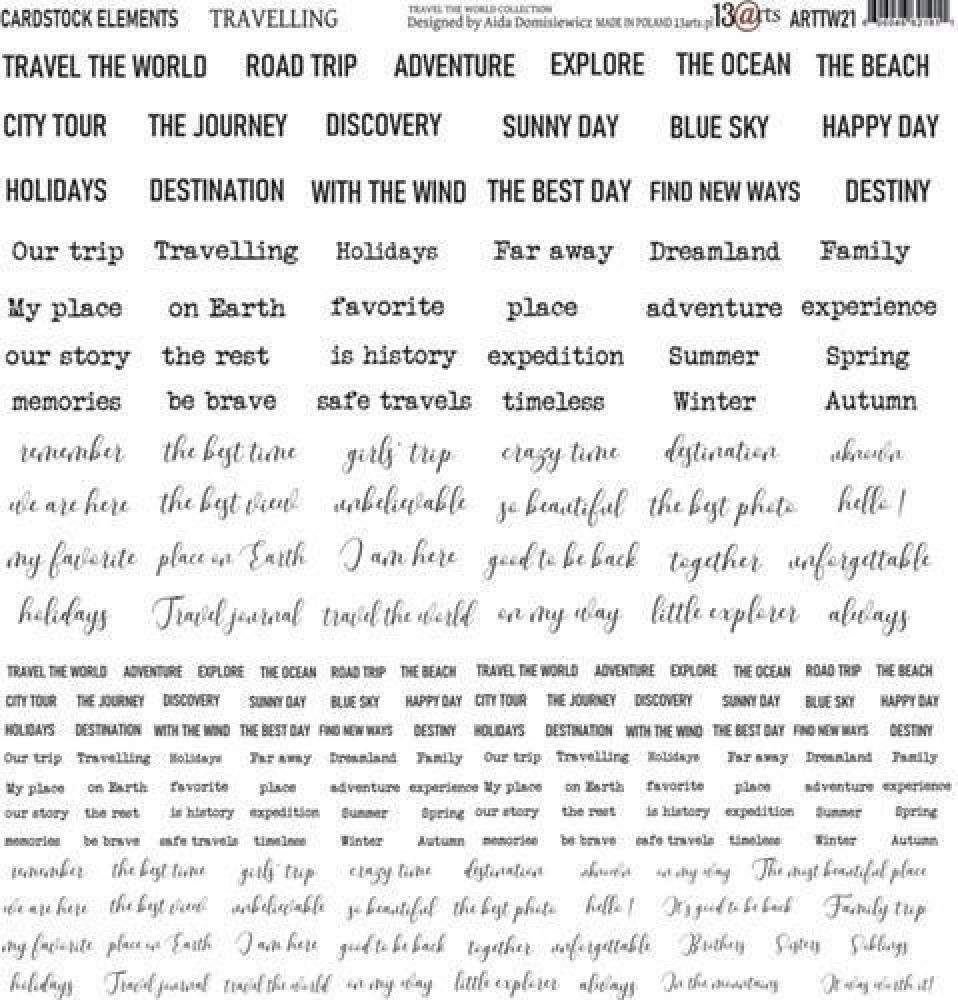 CARDSTOCK ELEMENTS TRAVELLING TRAVEL THE WORLD COLLECTION
Designed by Aida Domisiewicz MADE IN POLAND 13arts.pl 13@rts ARTTW21
TRAVEL THE WORLD ROAD TRIP ADVENTURE EXPLORE THE OCEAN THE BEACH
CITY TOUR THE JOURNEY DISCOVERY SUNNY DAY BLUE SKY HAPPY DAY
HOLIDAYS DESTINATION WITH THE WIND THE BEST DAY FIND NEW WAYS DESTINY
Our trip Travelling Holidays Far away Dreamland Family
My place on Earth favorite place adventure experience
our story the rest is history expedition Summer Spring
memories be brave safe travels timeless Winter Autumn
remember the best time girls' trip crazy time destination
we are here the best view unbelievable so beautiful the best photo hello !
my favorite place on Earth I am here good to be back together unforgettable
holidays Travel journal travel the world on my way little explorer always
TRAVEL THE WORLD ADVENTURE EXPLORE THE OCEAN ROAD TRIP THE BEACH TRAVEL THE WORLD ADVENTURE EXPLORE THE OCEAN ROAD TRIP THE BEACH
CITY TOUR THE JOURNEY DISCOVERY SUNNY DAY BLUE SKY HAPPY DAY CITY TOUR THE JOURNEY DISCOVERY SUNNY DAY BLUE SKY HAPPY DAY
HOLIDAYS DESTINATION WITH THE WIND THE BEST DAY FIND NEW WAYS DESTINY HOLIDAYS DESTINATION WITH THE WIND THE BEST DAY FIND NEW WAYS DESTINY
Our trip Travelling Holidays Far away Dreamland Family Our trip Travelling Holidays Far away Dreamland Family
My place on Earth favorite place adventure experience My place on Earth favorite place adventure experience
our story the rest is history expedition Summer Spring our story the rest is history expedition Summer Spring
memories be brave safe travels timeless Winter Autumn memories be brave safe travels timeless Winter Autumn
remember the best time girls' trip crazy time destination on my way The most beautiful place
we are here the best view unbelievable so beautiful the best photo hello ! It's good to be back Family trip
my favorite place on Earth I am here good to be back together unforgettable Brothers Sisters Siblings
holidays Travel journal travel the world on my way little explorer always In the mountains It was worth it!